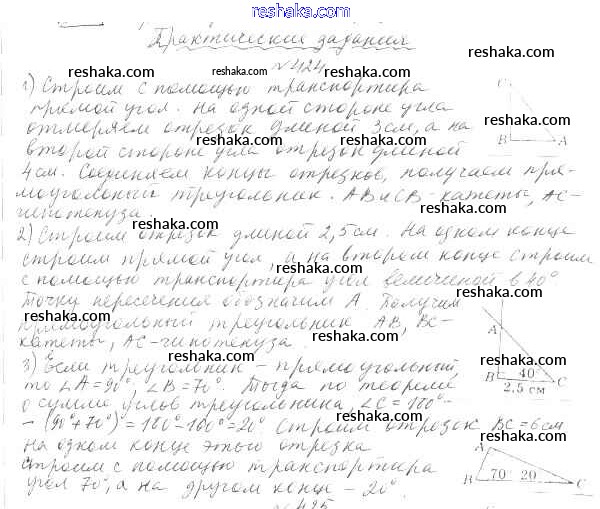 reshaka.com
Практические задания
reshaka.com
№424
reshaka.com reshaka.com reshaka.com reshaka.com
1) Строим с помощью транспортира
прямой угол. На одной стороне угла
отмеряем отрезок длиной 3см, а на
второй стороне угла отрезок длиной
4см. Соединяем концы отрезков, получаем пря-
моугольный треугольник. AB и CB - катеты, AC-
гипотенуза.
C
B A
reshaka.com reshaka.com reshaka.com
2) Строим отрезок длиной 2,5см. На одном конце
строим прямой угол, а на втором конце строим
с помощью транспортира угол величиной в 40°
Точку пересечения обозначим A. Получим
прямоугольный треугольник AB, BC-
катеты, AC-гипотенуза.
A
B 40° C
2,5 см
reshaka.com reshaka.com reshaka.com
3) Если треугольник - прямоугольный,
то ∠A=90°, ∠B=70°. Тогда по теореме
о сумме углов треугольника, ∠C=180°-
-(90°+70°)=180°-160°=20° Строим отрезок BC=6см
На одном конце этого отрезка
строим с помощью транспортира
угол 70°, а на другом конце - 20°.
A
B 70° 20 C
reshaka.com reshaka.com reshaka.com
№425